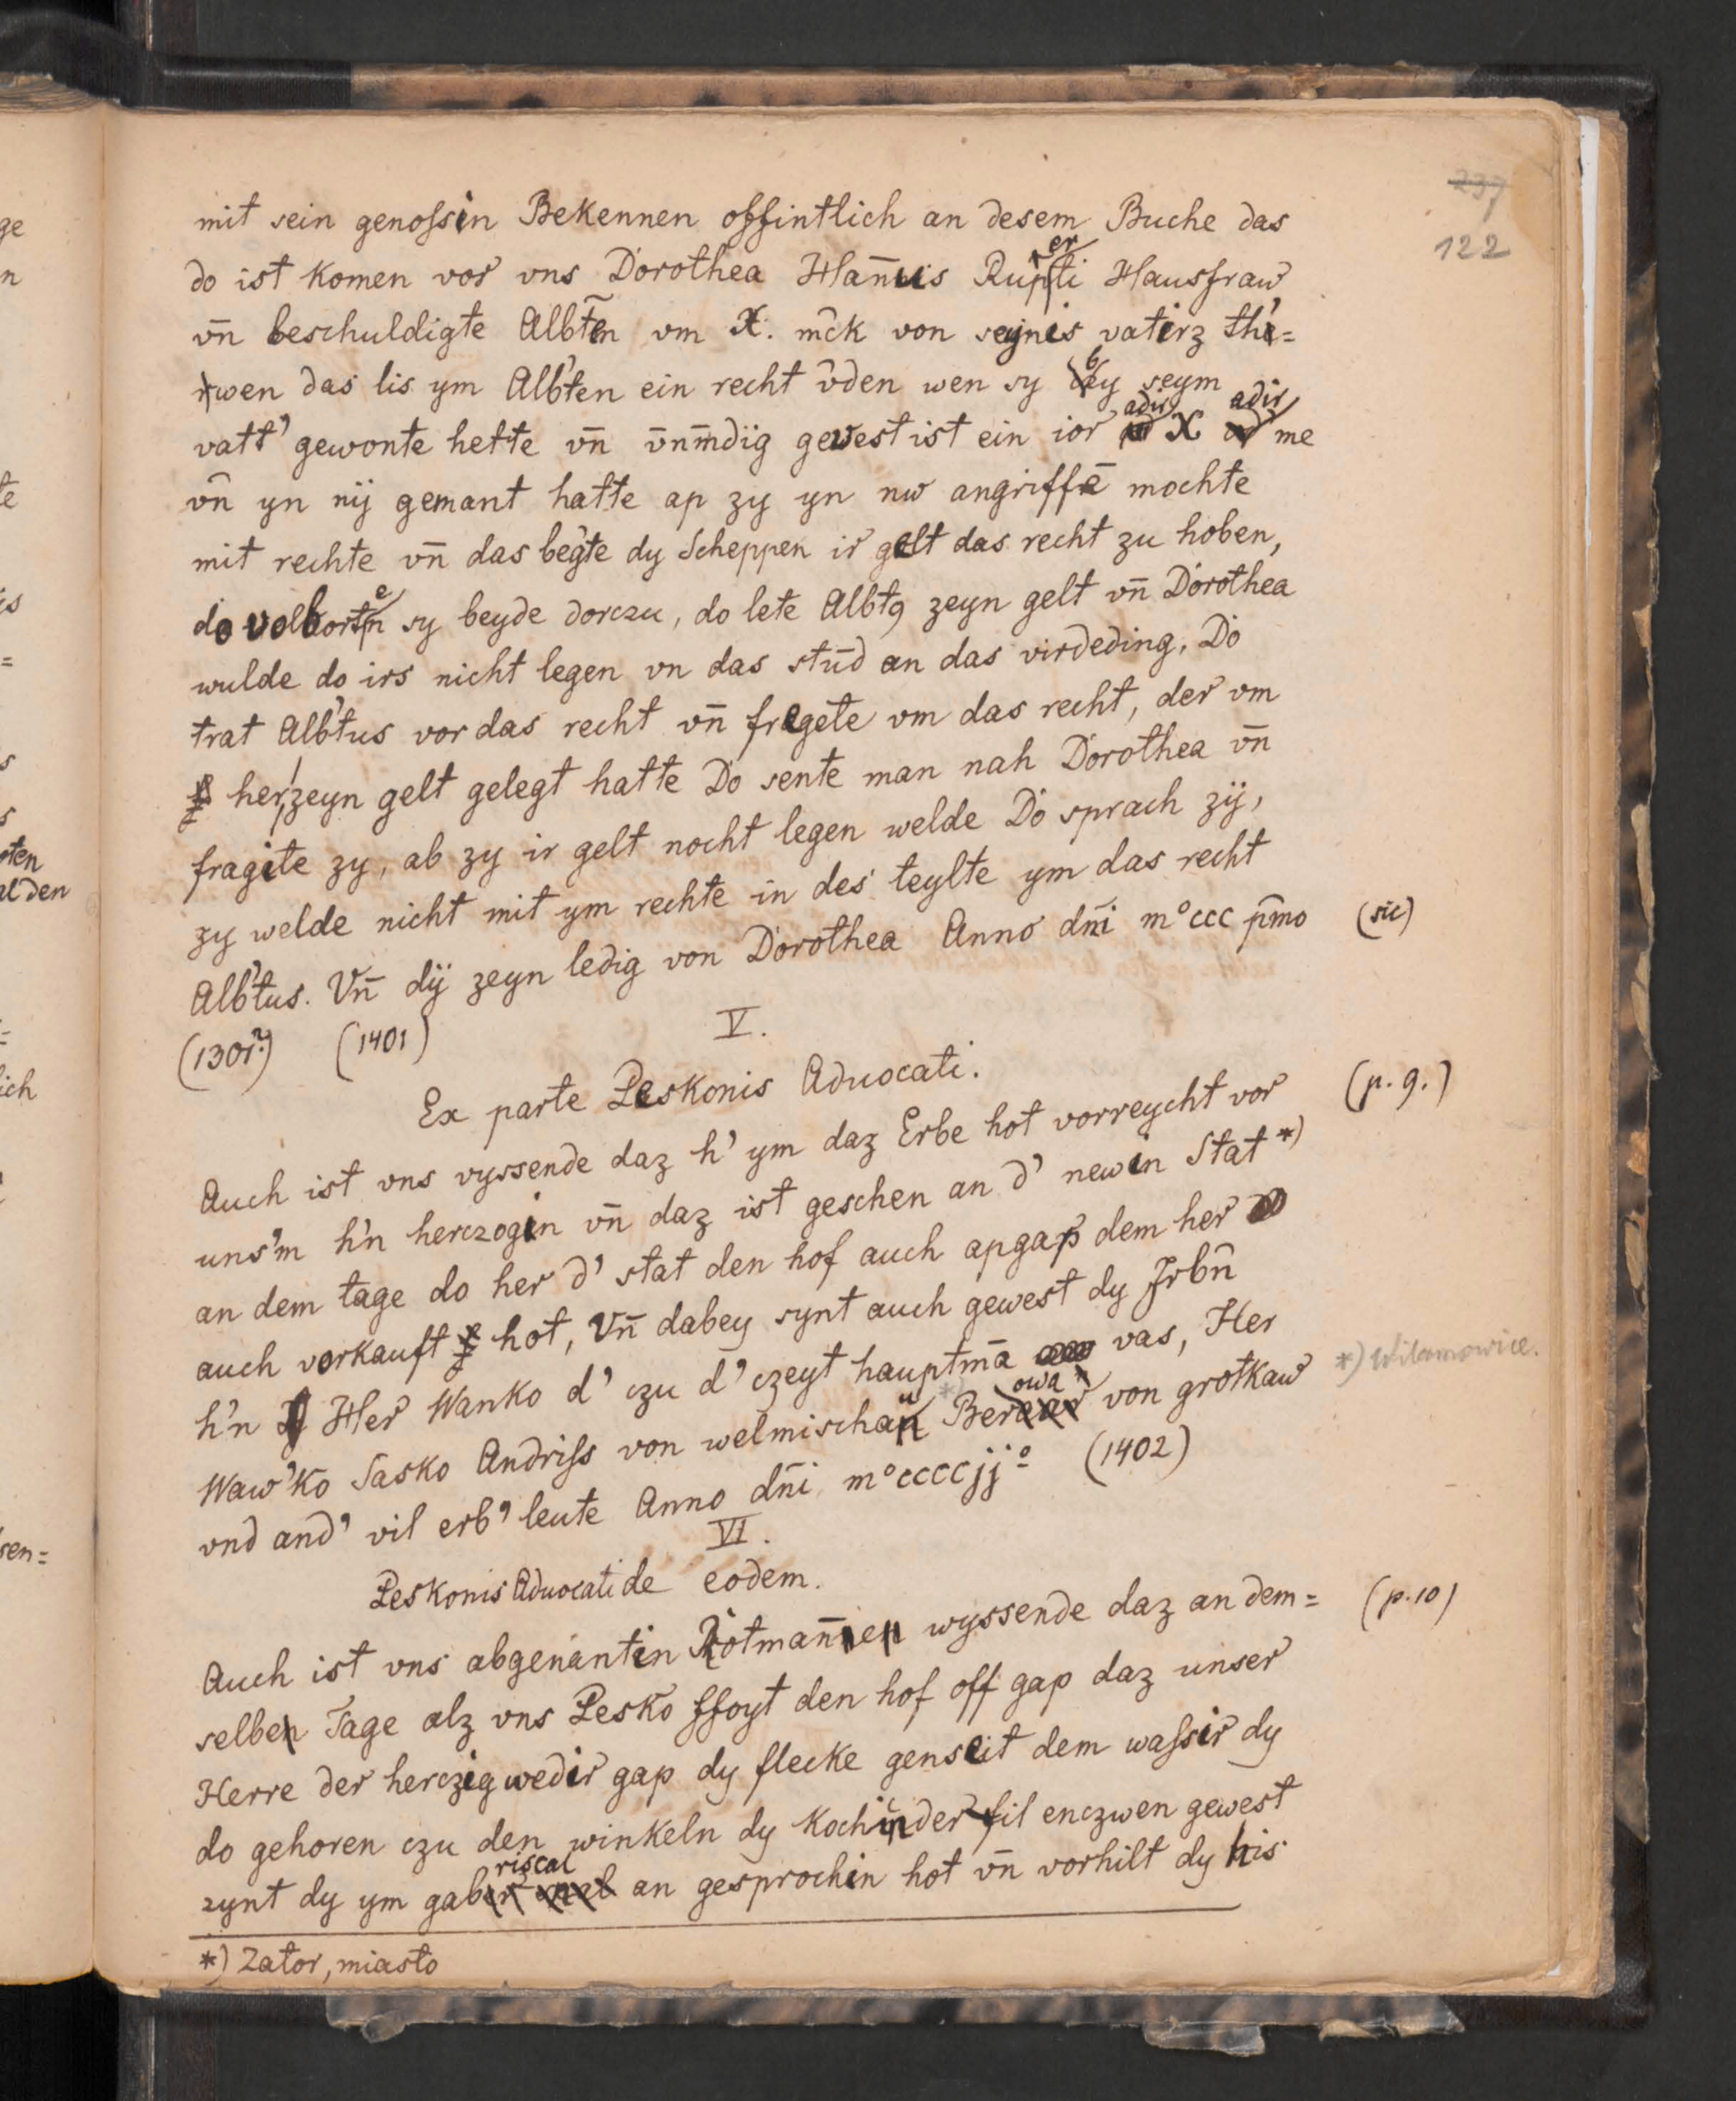 237
122
mit sein genoſsin Bekennen offintlich an desem Buche das
do ist komen vor vns Dorothea Han̄uis Ruperti Hausfraw
vn̄ beschuldigte Albt̄en vm X. mc̄k von seynis vatirz the=
wen das lis ym Alb'ten ein recht v̄den wen sy by seym
vatt' gewonte hette vn̄ v̄nm̄dïg gewest ist ein ior adir X adir me
vn̄ yn nÿ gemant hatte ap zy yn nw angriffē mochte
mit rechte vn̄ das beg'te dy Scheppen ir gelt das recht zu hoben,
do volborten sy beyde dorczu, do lete Albtꝯ zeyn gelt vn̄ Dorothea
wulde do irs nicht legen vn das stūd an das virdeding, Do
trat Alb'tus vor das recht vn̄ fregete vm das recht, der vm
her zeyn gelt gelegt hatte Do sente man nah Dorothea vn̄
fragite zy, ab zy ir gelt nocht legen welde Do sprach zÿ,
zy welde nicht mit ym rechte in des teylte ym das recht
Alb'tus. Vn̄ dÿ zeyn ledig von Dorothea Anno dn̄i m°ccc p̄mo (sic)
(1301?) (1401)
V.
Ex parte Peskonis Aduocati.
Auch ist vns vyssende daz h' ym daz Erbe hot vorreycht vor (p. 9.)
uns'm h'n herczogin vn̄ daz ist geschen an d' newin Stat *)
an dem tage do her d' stat den hof auch apgap dem her
auch vorkauft hot, Vn̄ dabey synt auch gewest dy Jrbn̄
h'n Her Wanko d' czu d' czeyt hauptmā vas, Her
Waw'ko Sasko Andriſs von welmischaū *) Berowa von grotkaw *) Wilamowice.
vnd and' vil erb' leute Anno dn̄i m°ccccjj° (1402)
VI.
Peskonis Aduocati de eodem.
Auch ist vns abgenantin Rotman̄en wyssende daz an dem= (p. 10)
selben Tage alz vns Pesko ffoyt den hof off gap daz unser
Herre der herczig wedir gap dy flecke genseit dem waſsir dy
do gehoren czu den winkeln dy kochinder fil enczwen gewest
zynt dy ym gabriscal an gesprochin hot vn̄ vorhilt dy his
*) Zator, miasto